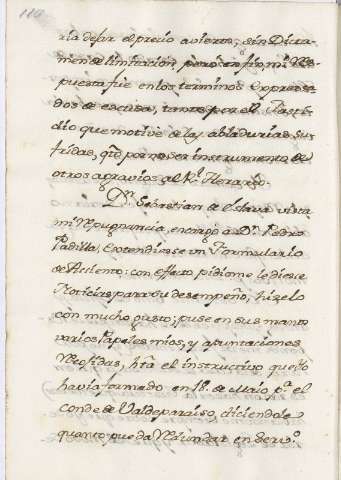 110
ria dejar el precio avierto; sin Dicta-
men de limitacion, pero en fin, mi Res-
puesta fue en los terminos expresa-
dos de escusa, tanto por el Fasti-
dio que motivé de las abladurias su-
fridas, q.to por no ser instrumento de
otros agravios al R.l Herario.
D.n Sebastian de Eslava vista
mi Repugnancia, encargó a D.n Pedro
Padilla, extendiese un Formulario
de Asiento: con efecto pidiome le diese
Noticias para su desempeño, hizelo
con mucho gusto; puse en sus manos
varios Papeles mios, y apuntaciones
Refidas, hta el instructivo que Yo
havia formado en 18. de Maio p.a el
Conde de Valdeparaiso, diciendole
quanto pueda Redundar en serv.o